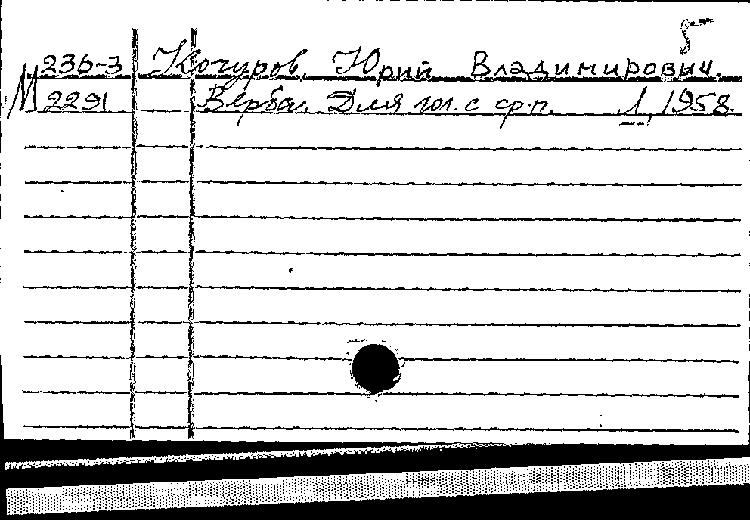 5
236-3 Кочуров, Юрий Владимирович.
М 2291 Верба. Для гол. с ср-п. Л, 1958